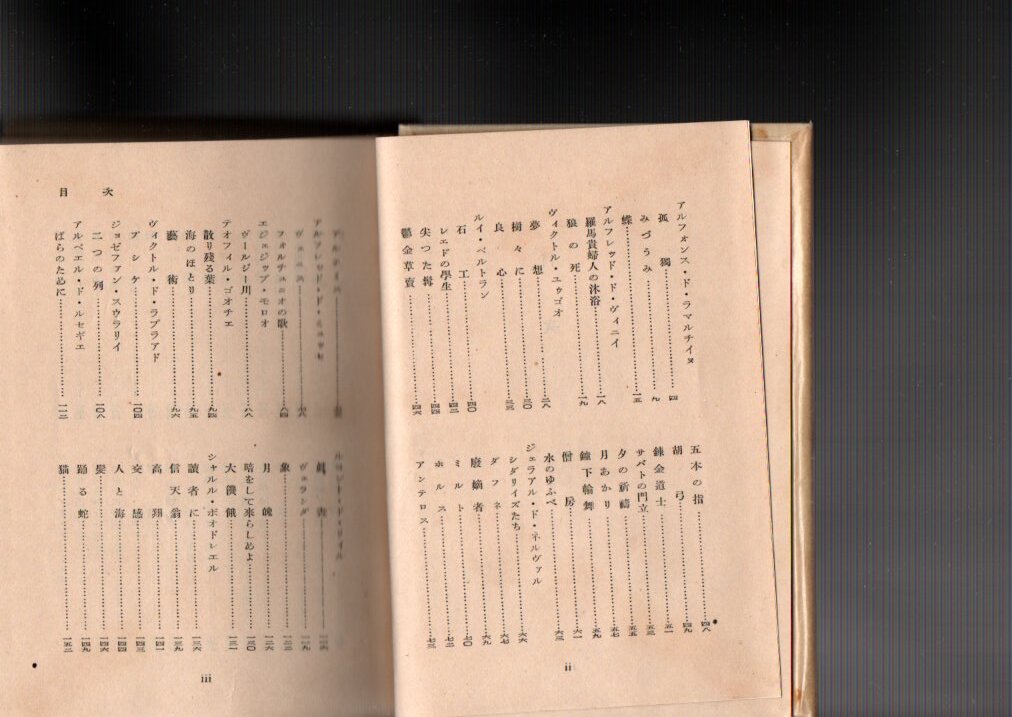 アルフォンス・ド・ラマルチイヌ
孤獨……四
みづうみ……九
蝶……一五
アルフレッド・ド・ヴィニイ……一八
羅馬貴婦人の沐浴
狼の死……一九
ヴィクトル・ユゥゴオ
夢想……二八
樹々に……三〇
良心……三三
ルイ・ベルトラン
石工……四〇
レエドの學生……四二
尖つた髯……四四
鬱金草賣……四六
五本の指……四八
胡弓……四九
錬金道士……五一
サバトの門立……五三
夕の祈禱……五五
月あかり……五七
鐘下輪舞……五九
僧房……六一
水のゆふべ……六三
ジェラアル・ド・ネルヴァル
シダリイズたち……六六
ダフネ……六七
廢嫡者……六九
ミルト……七〇
ホルス……七二
アンテロス……七三
ii
目次
フォルチュニオの歌……八四
エジェジップ・モロオ
ヴールジー川……八八
テオフィル・ゴオチェ
散り殘る葉……九四
海のほとり……九五
藝術……九六
ヴィクトル・ド・ラプラアド
プシケ……一〇四
ジョゼファン・スウラリイ
二つの列……一〇八
アルベエル・ド・ルセギエ
ばらのために……一一二
ルコント・ド・リイル
眞晝
ヴェランダ
象……一二三
月魄……一二六
暗をして来らしめよ……一三〇
大饑餓……一三一
シャルル・ボオドレエル
讀者に……一三六
信天翁……一三九
高翔……一四一
交感……一四三
人と海……一四四
髪……一四六
踊る蛇……一四九
猫……一五二
iii